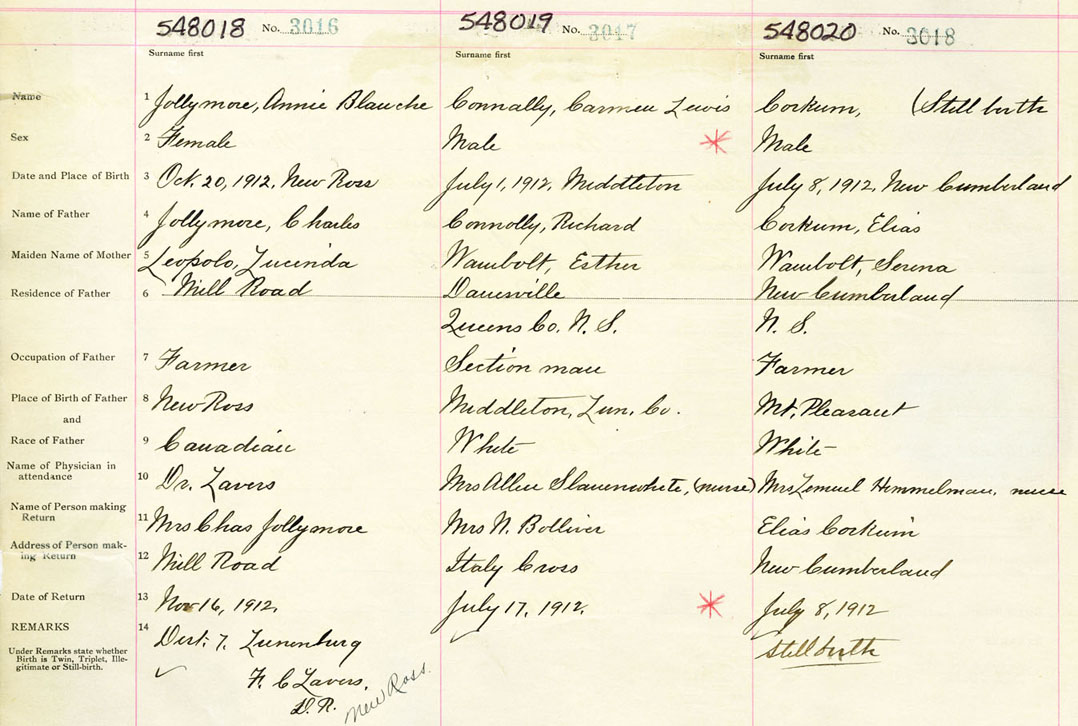 548018 No. 3016 548019 No. 3017 548020 No. 3018
Surname first Surname first Surname first
Name 1 Jollymore, Annie Blanche Connally, Carmen Lewis Corkum, (Still birth
Sex 2 Female Male Male
Date and Place of Birth 3 Oct. 20, 1912, New Ross July 1, 1912, Middleton July 8, 1912, New Cumberland
Name of Father 4 Jollymore, Charles Connolly, Richard Corkum, Elias
Maiden Name of Mother 5 Leopolo, Lucinda Wambolt, Esther Wambolt, Serena
Residence of Father 6 Mill Road Danesville New Cumberland
Queens Co. N. S. N. S.
Occupation of Father 7 Farmer Section man Farmer
Place of Birth of Father 8 New Ross Middleton, Lun. Co. Mt. Pleasant
and
Race of Father 9 Canadian White White
Name of Physician in
attendance 10 Dr. Lavers Mrs Allen Slauenwhite, (nurse) Mrs Lemuel Hemmelman, nurse
Name of Person making
Return 11 Mrs Chas Jollymore Mrs N. Bolliver Elias Corkum
Address of Person mak-
ing Return 12 Mill Road Italy Cross New Cumberland
Date of Return 13 Nov 16, 1912, July 17, 1912, July 8, 1912
REMARKS 14 Dist. 7. Lunenburg Still birth
Under Remarks state whether
Birth is Twin, Triplet, Ille-
gitimate or Still-birth.
F. C Lavers,
D. R. New Ross.